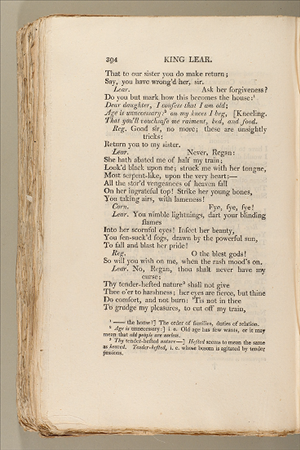 394 KING LEAR.
That to our sister you do make return;
Say, you have wrong'd her, sir.
Lear. Ask her forgiveness?
Do you but mark how this becomes the house:¹
Dear daughter, I confess that I am old;
Age is unnecessary:² on my knees I beg, [Kneeling.
That you'll vouchsafe me raiment, bed, and food.
Reg. Good sir, no more; these are unsightly
tricks:
Return you to my sister.
Lear. Never, Regan:
She hath abated me of half my train;
Look'd black upon me; struck me with her tongue,
Most serpent-like, upon the very heart:—
All the stor'd vengeances of heaven fall
On her ingrateful top! Strike her young bones,
You taking airs, with lameness!
Corn. Fye, fye, fye!
Lear. You nimble lightnings, dart your blinding
flames
Into her scornful eyes! Infect her beauty,
You fen-suck'd fogs, drawn by the powerful sun,
To fall and blast her pride!
Reg. O the blest gods!
So will you wish on me, when the rash mood's on.
Lear. No, Regan, thou shalt never have my
curse;
Thy tender-hefted nature³ shall not give
Thee o'er to harshness; her eyes are fierce, but thine
Do comfort, and not burn: 'Tis not in thee
To grudge my pleasures, to cut off my train,
¹ —— the house?] The order of families, duties of relation.
² Age is unnecessary:] i. e. Old age has few wants, or it may
mean that old people are useless.
³ Thy tender-hefted nature—] Hefted seems to mean the same
as heaved. Tender-hefted, i. e. whose bosom is agitated by tender
passions.